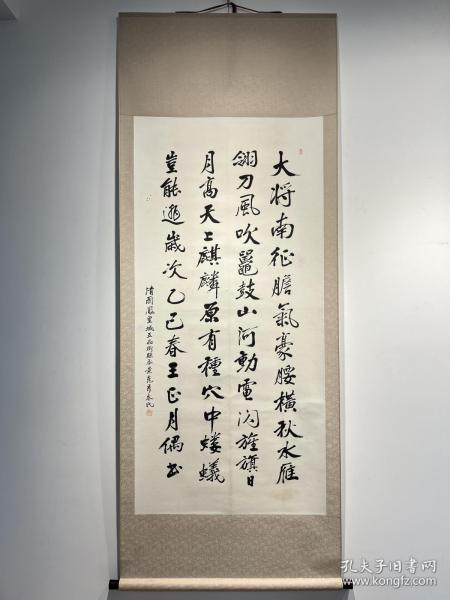 大将南征膽氣豪腰横秋水雁
翎刀風吹鼍鼓山河動電闪旌旗日
月高天上麒麟原有種穴中螻蟻
豈能逃歲次乙已春王正月偶書
清國鳳皇城
孔夫子旧书网
www.kongfz.com